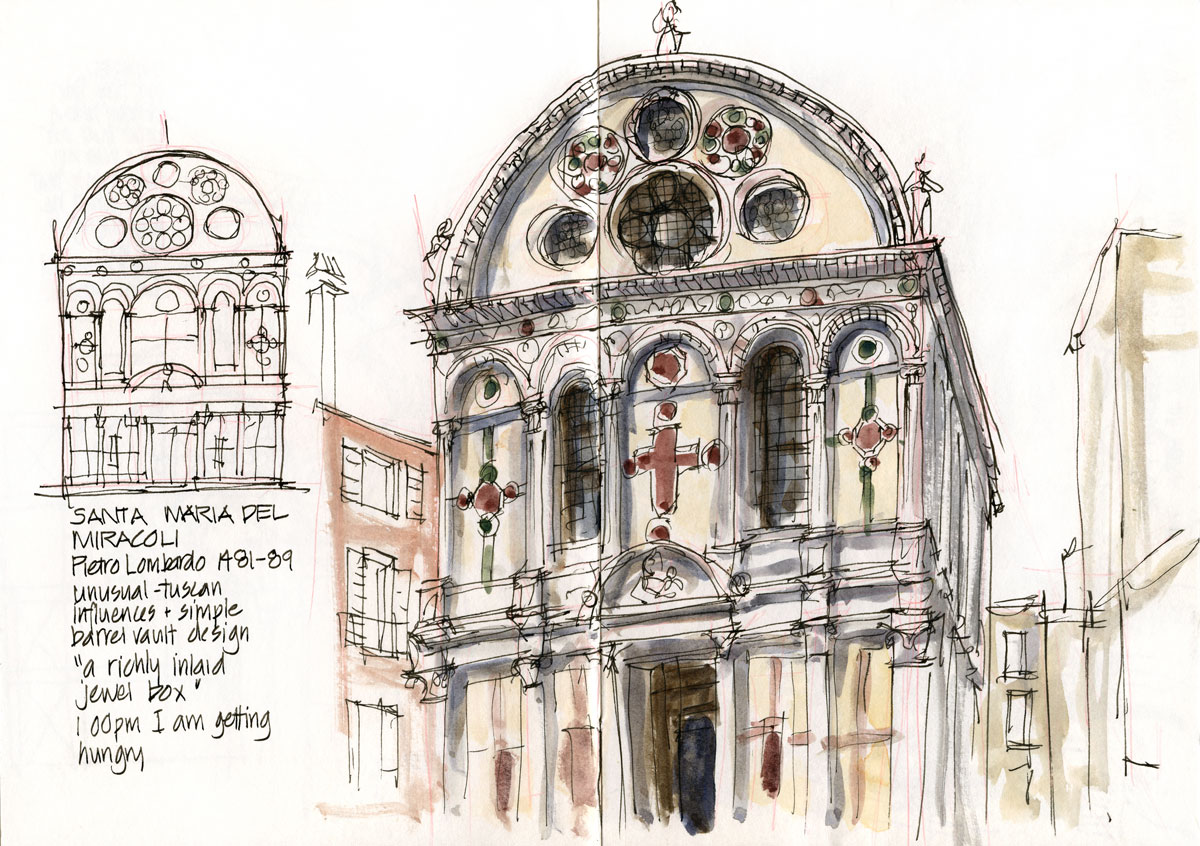 SANTA MARIA DEL
MIRACOLI
Pietro Lombardo 1481-89
unusual-tuscan
influences + simple
barrel vault design
"a richly inlaid
jewel box"
1 00pm I am getting
hungry